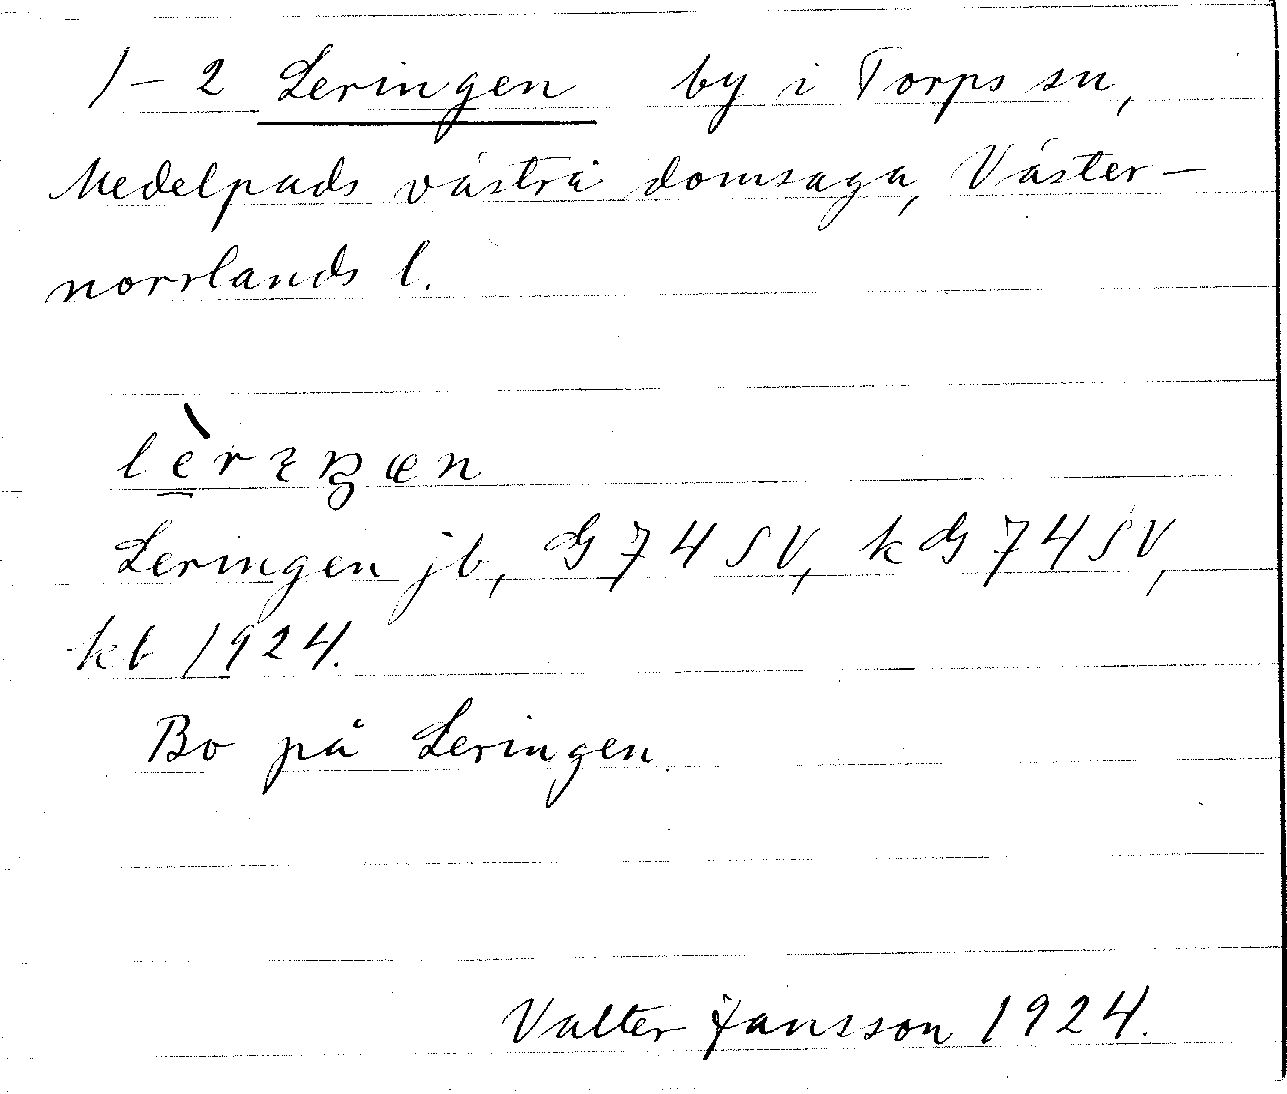 1–2 Leringen by i Torps sn,
Medelpads västra domsaga, Väster-
norrlands l.
Leringen jb, G 74 SV, kG 74 SV,
kb 1924.
Bo på Leringen.
Valter Jansson 1924.